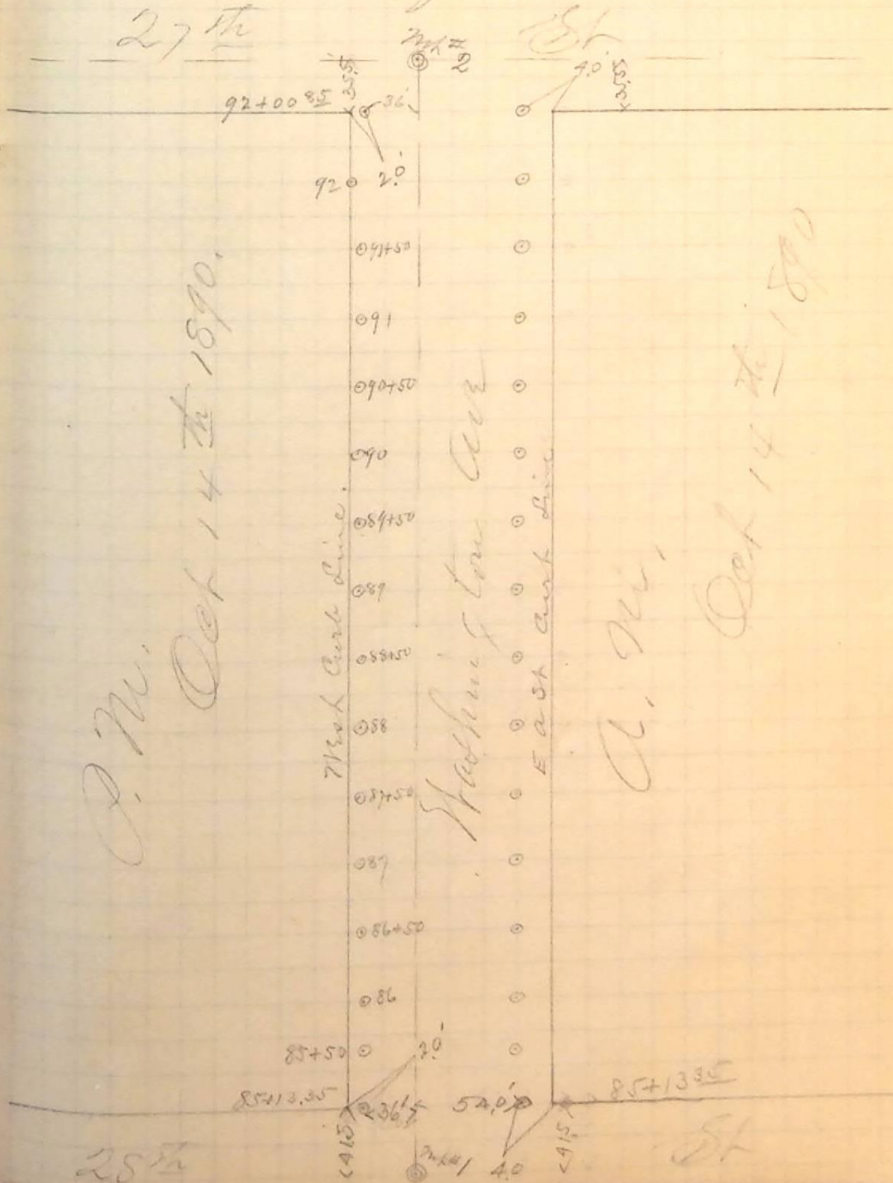 27th St
MH# 2
35.5
4.0
35.5
92+00 85
36'
2.0'
92
91+50
91
90+50
90
89+50
89
88+50
88
87+50
87
86+50
86
85+50
2.0'
85+13.35
36'
54.0'
85+13 35
41.5
MH#1
4.0
41.5
28th St
P. M.
Oct 14th 1890.
West Curb Line.
Washington Ave
East Curb Line
A. M.
Oct 14th 1890